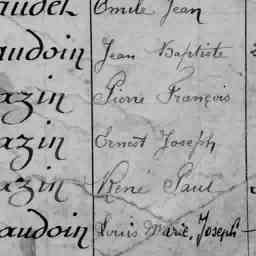 audet Emile Jean
audoin Jean Baptiste
azin Pierre François
azin Ernest Joseph
azin René Paul
audoin Louis Marie, Joseph